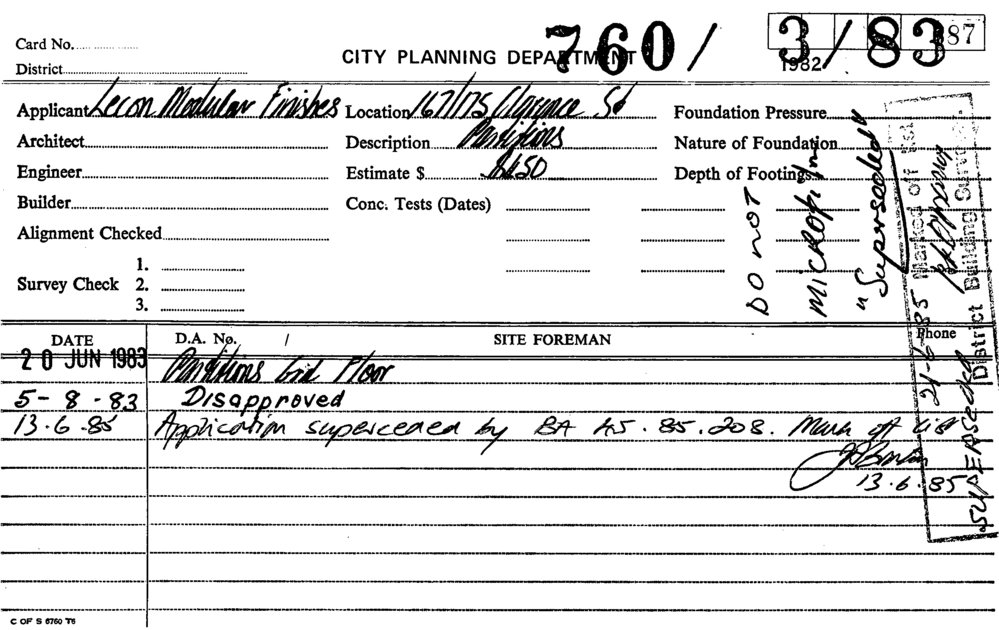 760/ 3/83
87
Card No.
CITY PLANNING DEPARTMENT
1982
District
Applicant Lecon Modular Finishes Location 167/175 Clarence St Foundation Pressure
Architect Description Partitions Nature of Foundation
Engineer Estimate $ 8450 Depth of Footings
Builder Conc. Tests (Dates)
Alignment Checked
1.
Survey Check 2.
3.
DO NOT
MICROfilm
"Superseded"
Marked off
21-6-85
District Building Surveyor
"SUPERSEEDED"
DATE D.A. No. / SITE FOREMAN Phone
20 JUN 1983 Partitions Grd Floor
5-8-83 Disapproved
13.6.85 Application superceded by BA 45.85.208. Mark off list
13.6.85
C OF S 6760 T6